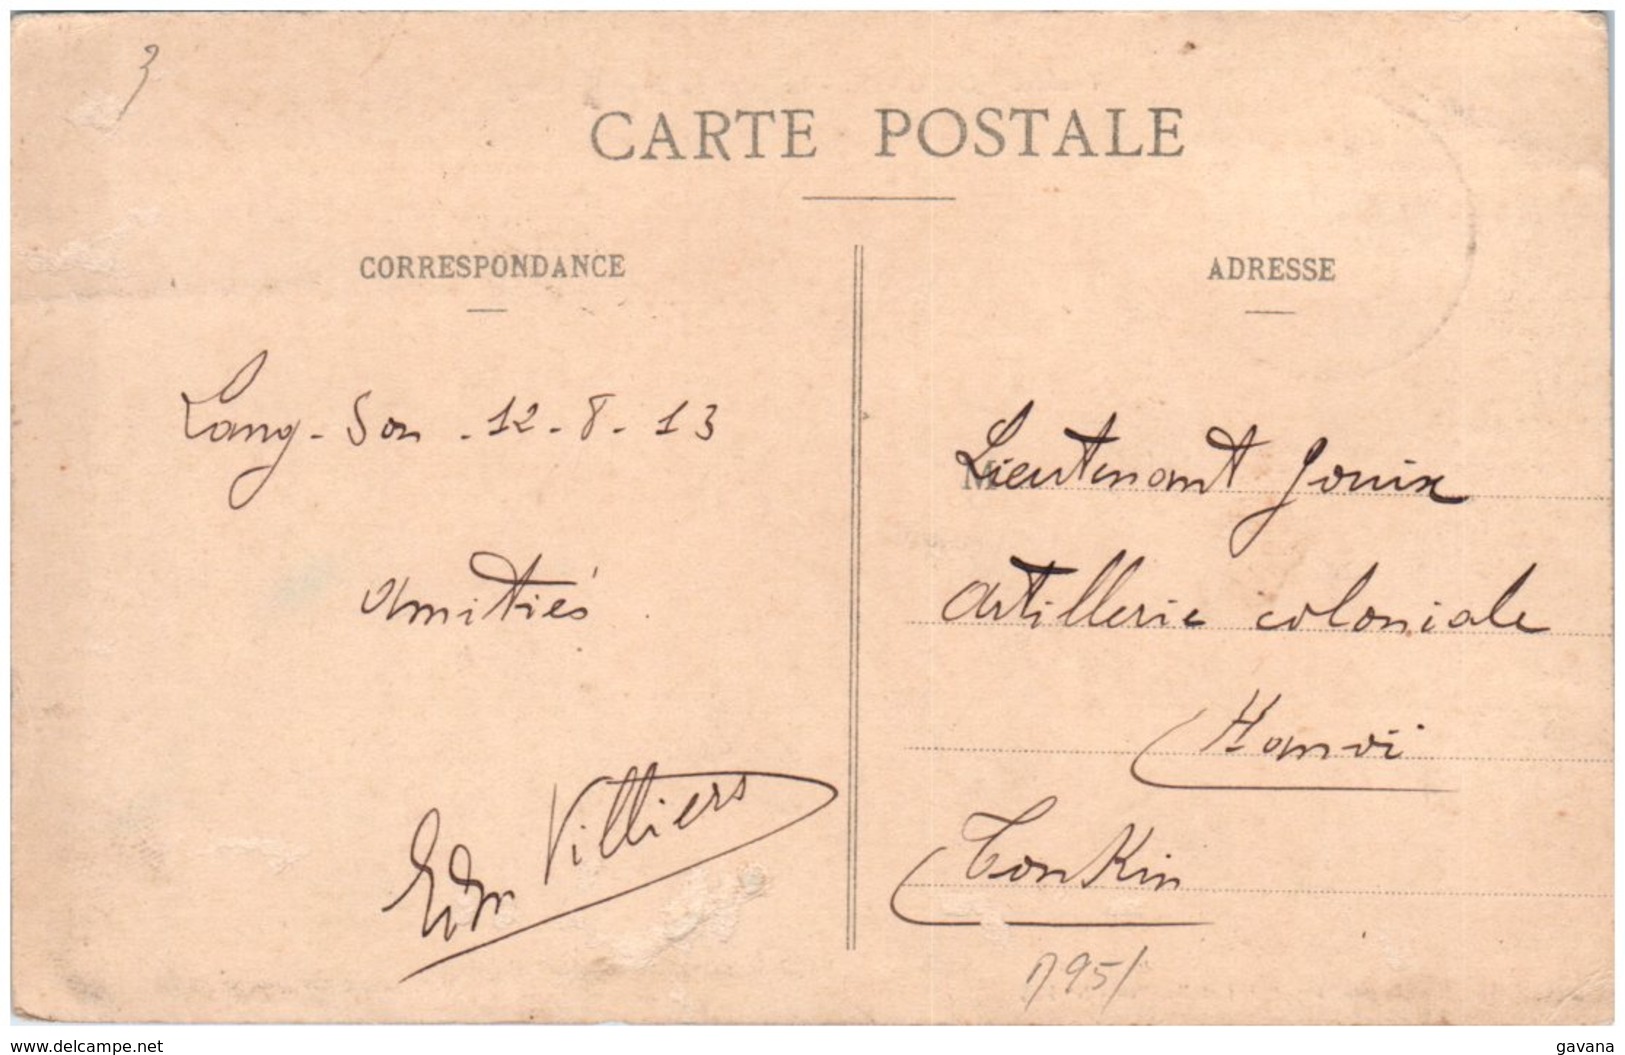 3
CARTE POSTALE
CORRESPONDANCE
ADRESSE
Lang-Son - 12-8-13
Amitiés.
Edm Villiers
M
Lieutenant Jouix
Artillerie coloniale
Hanoi
Tonkin
www.delcampe.net
gavana